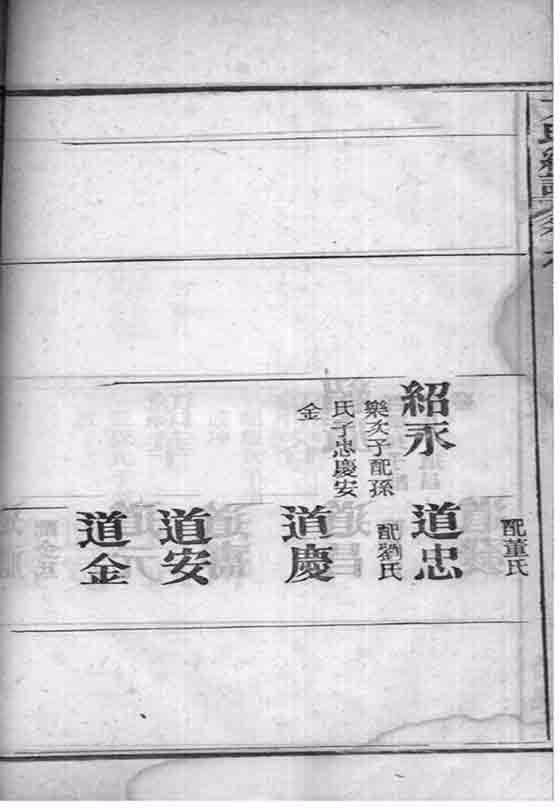 配董氏
紹永
樂次子配孫
氏子忠慶安
金
道忠
配劉氏
道慶
道安
道金